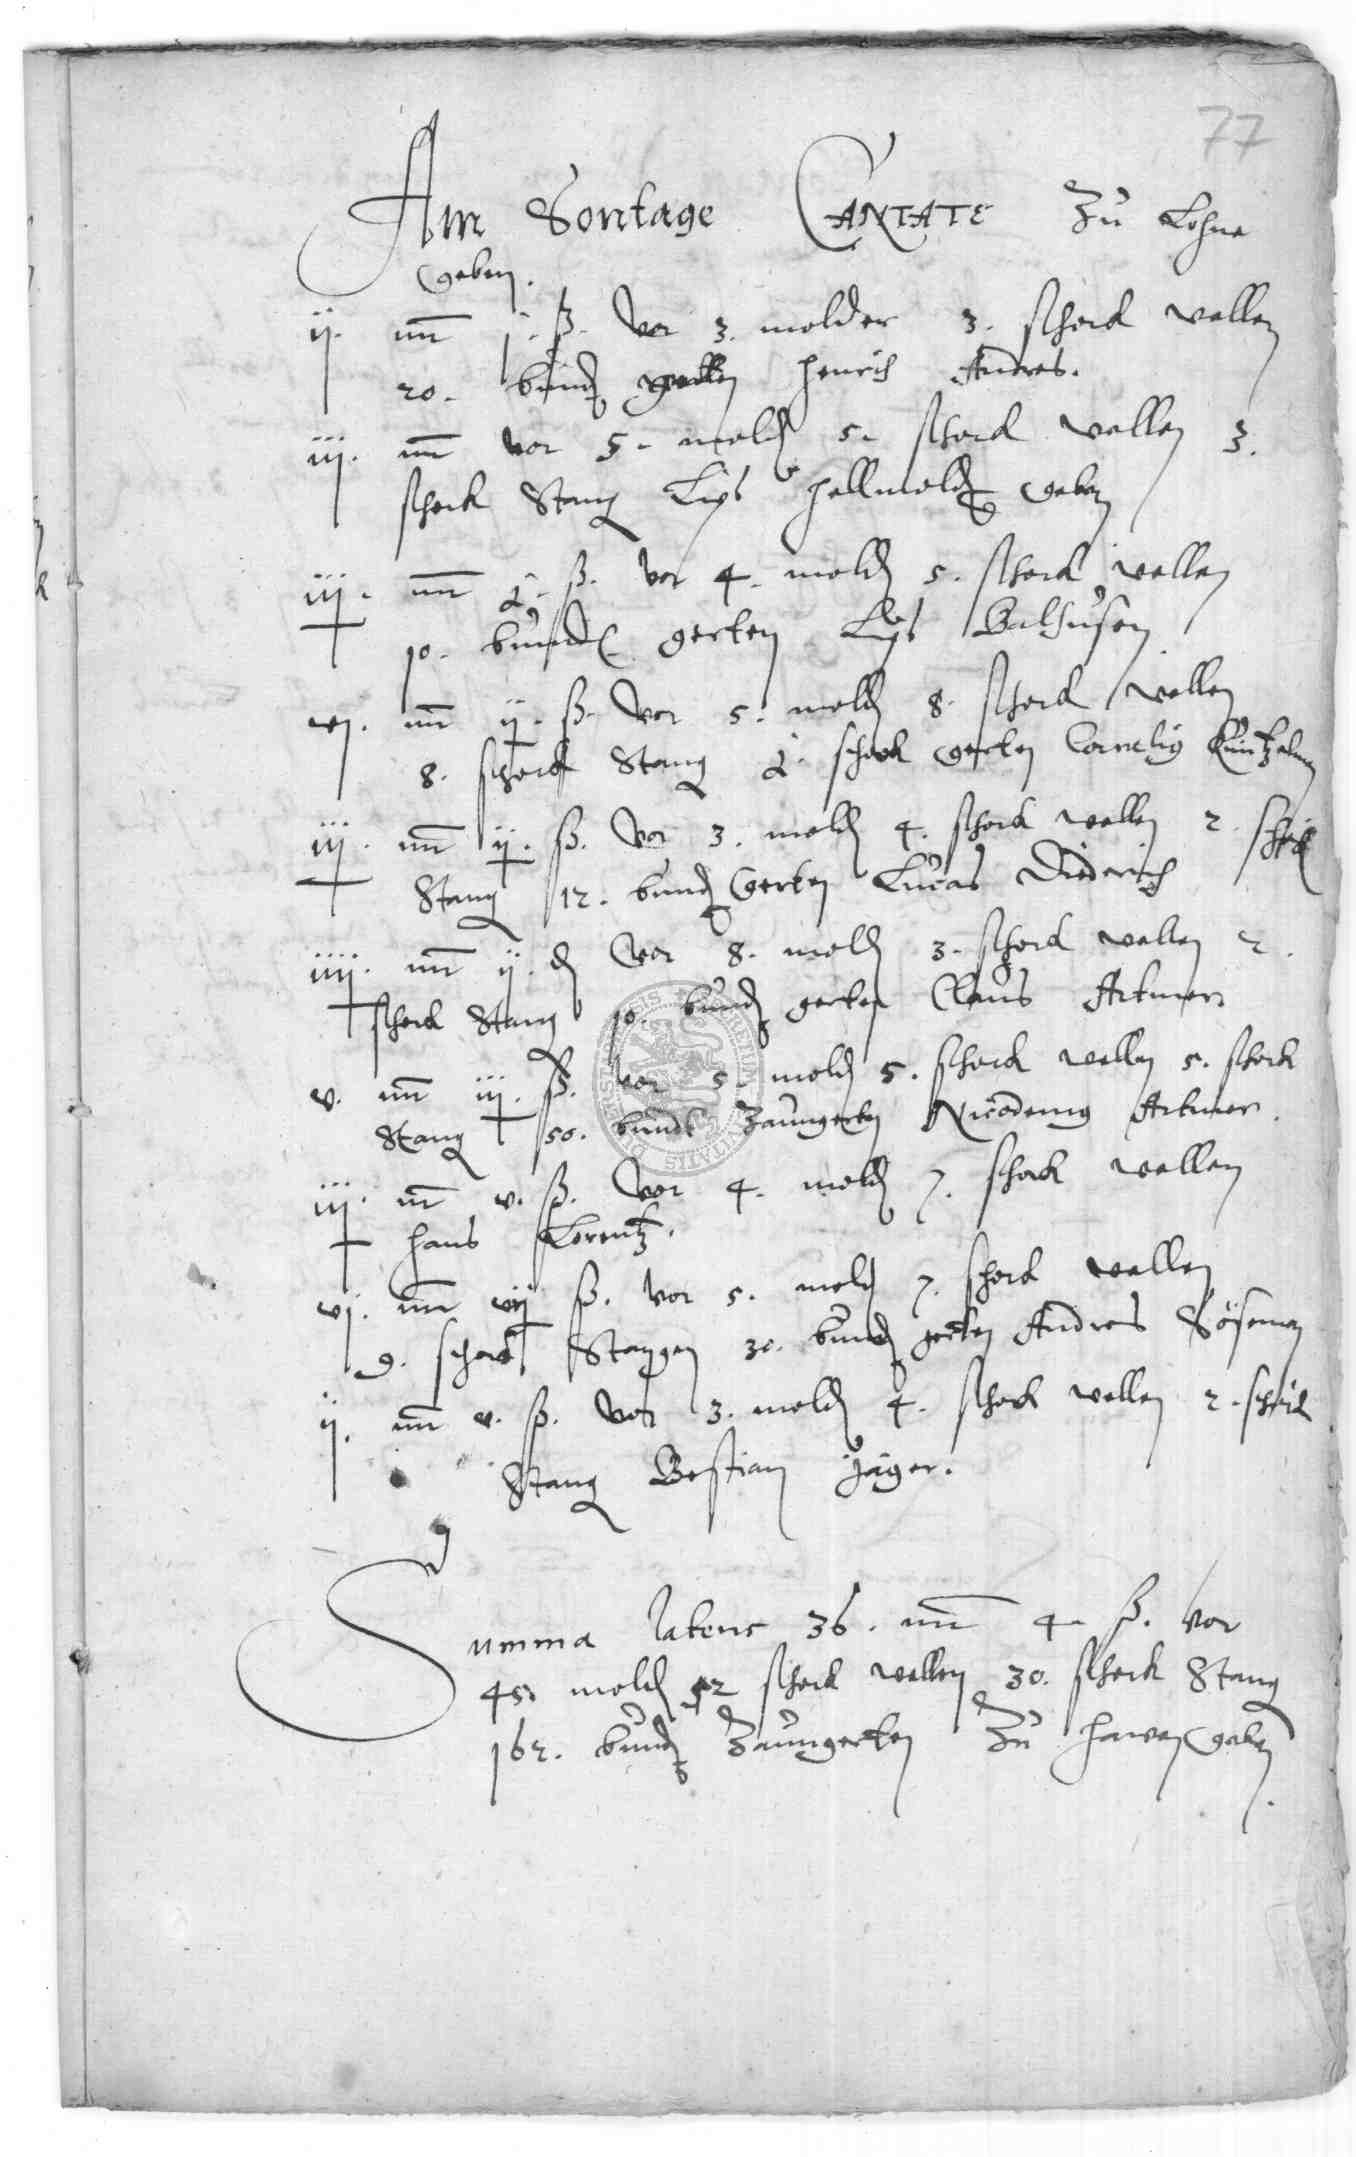 77
Am Sontage CANTATE Zu Lohne
geben.
ij. mr j. ß. vor 3. molder 3. schock wellen
20. bund gerten Henrich Andres.
iij. mr vor 5. mold 5. schock wellen 3.
schock Stang Lips Hellmold geben
iij. mr ß. vor 4. mold 5. schock wellen
10. bundt gerten Lips Balhusen
vj. mr ij. ß. vor 5. mold 8. schock wellen
8. schock Stang schock gerten Cornelig Kuntzelman
iij. mr ij. ß. vor 3. mold 4. schock wellen 2. schock
Stang 12. bund gerten Lucas Diederich
iiij. mr ij. d vor 8. mold 3. schock wellen 2.
schock Stang 10. bund gerten Claus Artmer
v. mr iij. ß. vor 5. mold 5. schock wellen 5. schock
Stang 50. bundt Zaungerten Nicodemg Artmer.
iij. mr v. ß. vor 4. mold 7. schock wellen
Hans Lorentz.
vj. mr vij ß. vor 5. mold 7. schock wellen
9. schock Stangen 30. bund gerten Andres Söseman
ij. mr v. ß. vor 3. mold 4. schock wellen 2. schock
Stang Bestian Jäger.
Summa latens 36. mr 4 ß. vor
45. mold 52 schock wellen 30. schock Stang
162. bund Zaungerten Zu hawen geben.